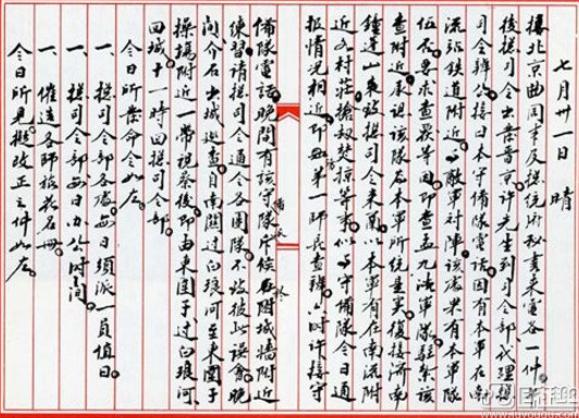 七月卅一日 晴
接北京曲同丰及總統府秘書來電各一件
後總司令出發晉京許先生到司令部代理總
司令辦公接日本守備隊電話因有本軍在南
流站鐵道附近與敵軍對陣該處果有本軍隊
伍否要求查最等因即查孟九軍隊駐紮該
查附近承認該隊為本軍所統是實復接濟南
鍾山東總司令來函以本軍有在南流附
近村莊搶劫焚掠等事似與守備隊今日通
報情況相近即第一師長查辦八時許接守
備隊電話晚間有該守隊斥候在附城牆附近
練習請總司令通令各團隊不致彼此誤會晚
間介石出城巡查自南關過白狼河至東圍子
操場附近一帶視察後即由東圍子過白狼河
回城十一時回總司令部
今日所命令如左
一、總司令部各處每日須派一員值日
一、總司令部每日辦公時間
一、催造各師旅花名冊
今日所見擬改正之件如左